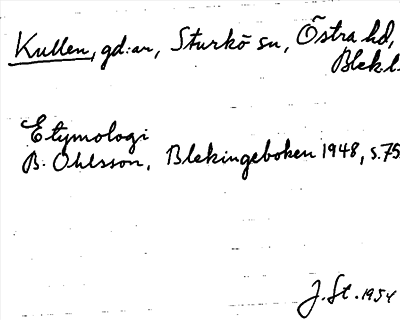 Kullen, gd:ar, Sturkö sn, Östra hd,
Blek.l.
Etymologi
B. Ohlsson, Blekingeboken 1948, s.75
J. St. 1954